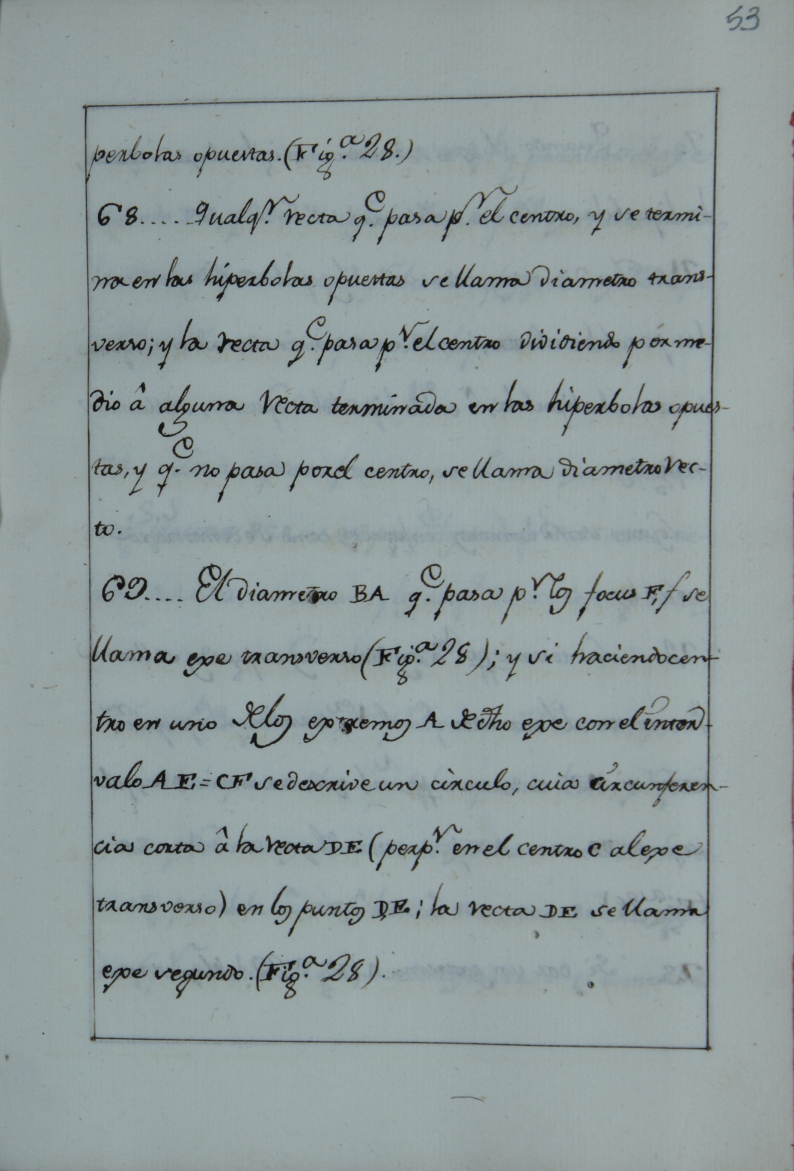 53
perbolas opuestas. (Fig.ª 28.)
68.... Qualq.r recta q.e pasa p.r el centro, y se termi-
na en las hiperbolas opuestas se llama diametro trans-
verso; y la recta q.e pasa p.r el centro dividiendo por me-
dio â alguna recta terminada en las hiperbolas opues-
tas, y q.e no pasa por el centro, se llama diametro rec-
to.
69.... El diametro BA q.e pasa p.r los focus F, f se
llama exe transverso (Fig.ª 28); y si haciendo cen-
tro en uno de los extremos A de dho exe con el inter-
valo AE=CF se descrive un circulo, cuia circunferen-
cia corta â la recta DE (perp.r en el centro C al exe
transverso) en los puntos D,E; la recta DE se llama
exe segundo. (Fig.ª 28).